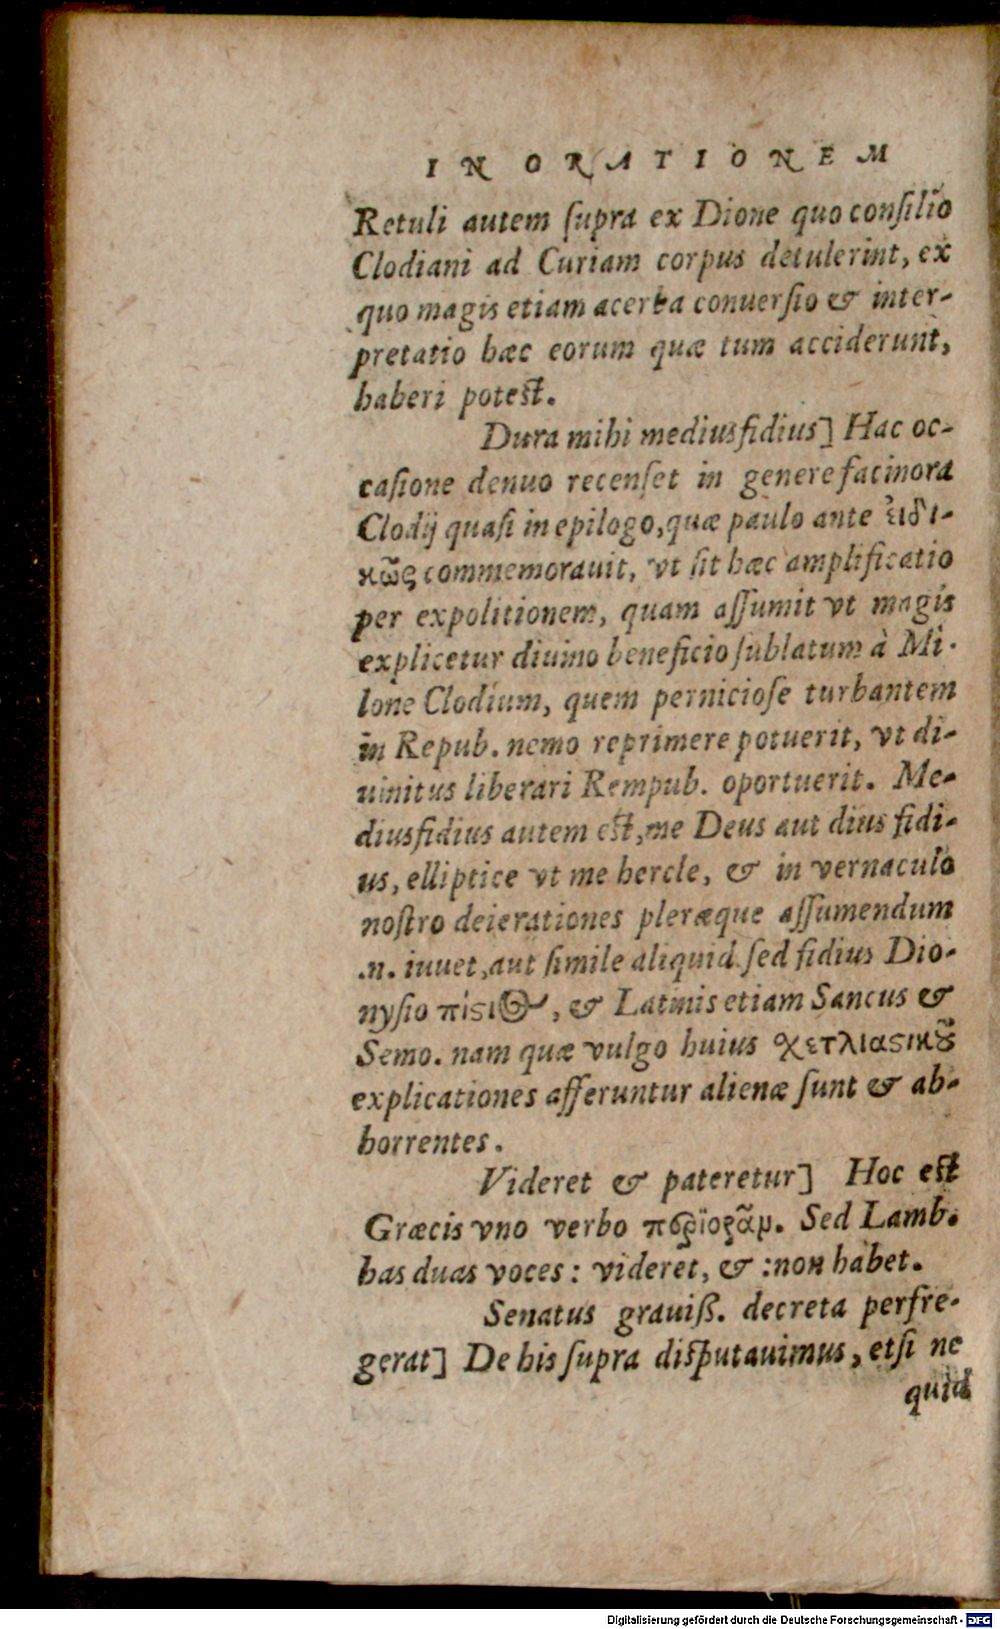 IN ORATIONEM
Retuli autem ſupra ex Dione quo conſilio
Clodiani ad Curiam corpus detulerint, ex
quo magis etiam acerba conuerſio & inter-
pretatio hæc eorum quæ tum acciderunt,
haberi poteſt.
Dura mihi mediusfidius] Hac oc-
caſione denuo recenſet in genere facinora
Clodij quaſi in epilogo, quæ paulo ante ἐιδι-
κῶς commemorauit, vt ſit hæc amplificatio
per expolitionem, quam aſſumit vt magis
explicetur diuino beneficio ſublatum à Mi-
lone Clodium, quem pernicioſe turbantem
in Repub. nemo reprimere potuerit, vt di-
uinitus liberari Rempub. oportuerit. Me-
diusfidius autem eſt, me Deus aut dius fidi-
us, elliptice vt me hercle, & in vernaculo
noſtro deierationes pleræque aſſumendum
.n. iuuet, aut ſimile aliquid. ſed fidius Dio-
nyſio πίϛιος, & Latinis etiam Sancus &
Semo. nam quæ vulgo huius χετλιαϛικȣ͂
explicationes afferuntur alienæ ſunt & ab-
horrentes.
Videret & pateretur] Hoc eſt
Græcis vno verbo περϊορᾶμ. Sed Lamb.
has duas voces: videret, & :non habet.
Senatus grauiß. decreta perfre-
gerat] De his ſupra diſputauimus, etſi ne
quid
Digitalisierung gefördert durch die Deutsche Forschungsgemeinschaft - DFG